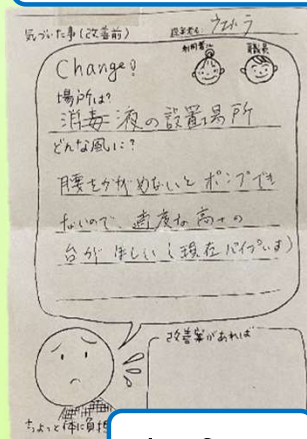 気づいた事(改善前)
提案者名 ウエムラ
利用者様 職員
Change!
場所は?
消毒液の設置場所
どんな風に?
腰をかがめないとポンプでき
ないので、適度な高さの
台がほしい(現在パイプいす)
改善案があれば
ちょっと体に負担